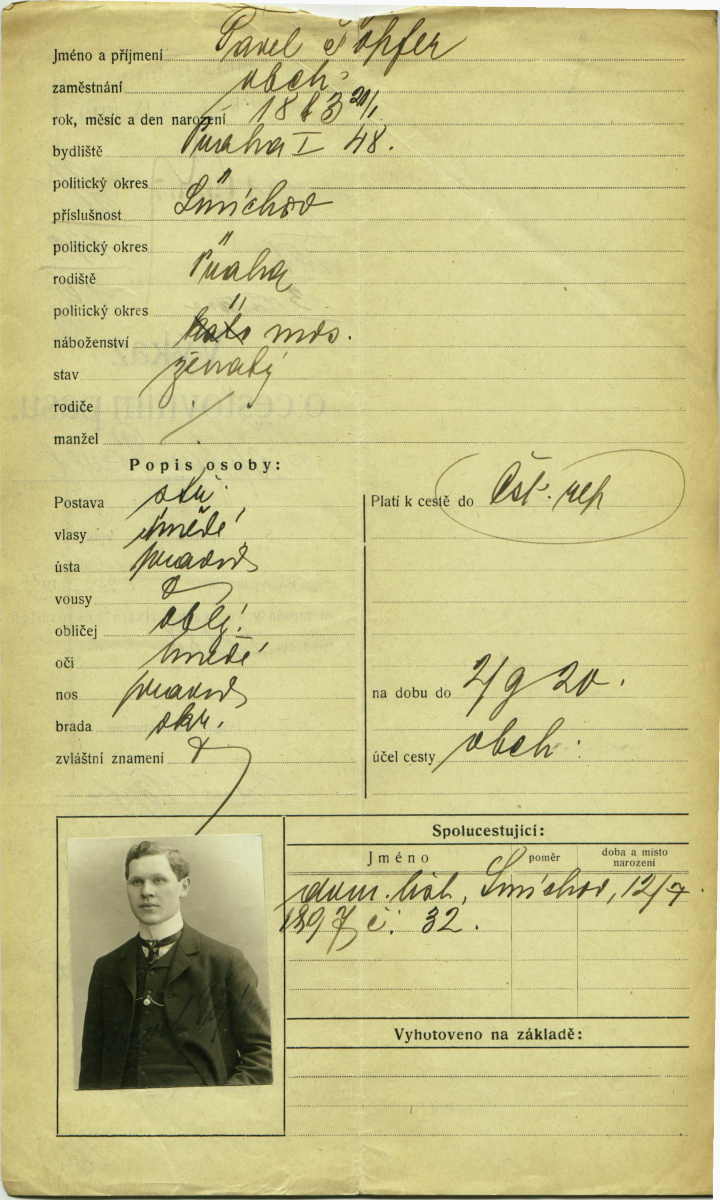 Jméno a příjmení Pavel Töpfer
zaměstnání obch.
rok, měsíc a den narození 1883 20/1
bydliště Praha I 48.
politický okres "
příslušnost Smíchov
politický okres "
rodiště Praha
politický okres "
náboženství mos.
stav ženatý
rodiče
manžel
Popis osoby:
Postava stř.
vlasy hnědé
ústa pravid
vousy
obličej obly.
oči hnědé
nos pravid
brada okr.
zvláštní znamení
Platí k cestě do Čsl. rep
na dobu do 2/9 20.
účel cesty obch.
Spolucestující:
Jméno poměr doba a místo narození
dom. list, Smíchov, 12/7.
1897 č. 32.
Vyhotoveno na základě: